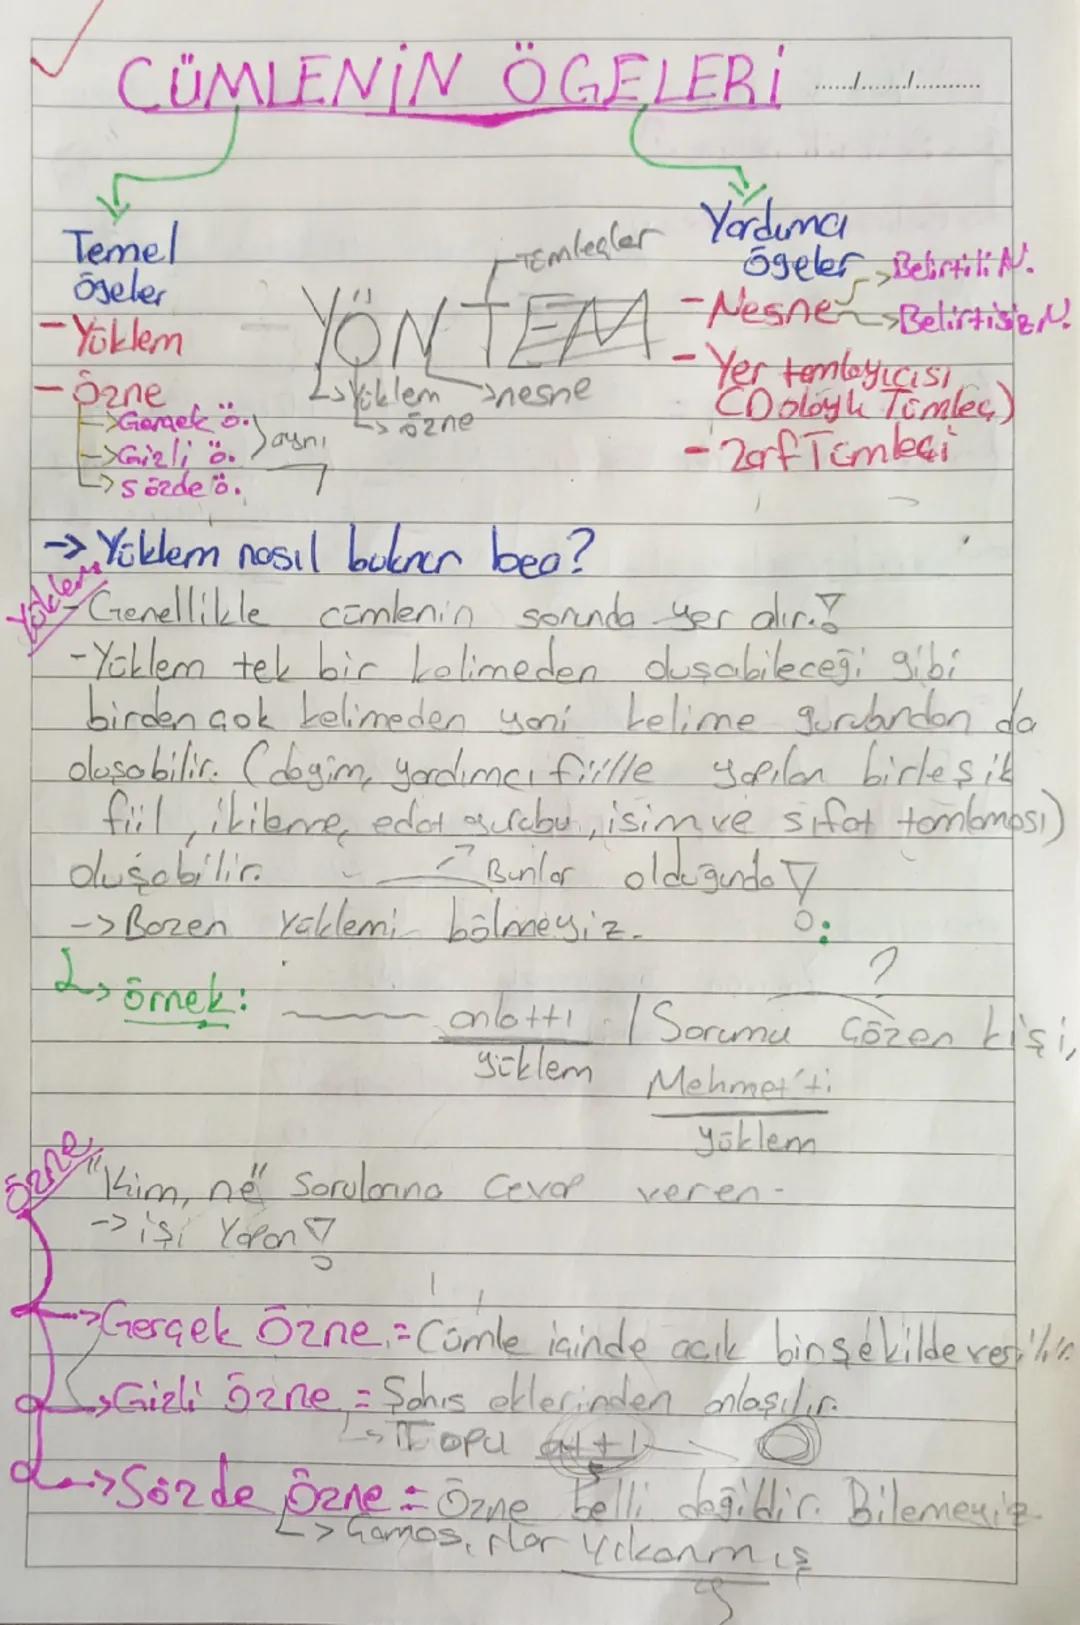 CÜMLENİN ÖGELERİ ....../......../..........
Temel
ögeler
- Yüklem
- Özne
->Gerçek ö.
->Gizli ö.
->Sözde ö.
aynı
YÖNTEM
Tümleçler
->Yüklem
->özne
->nesne
Yardımcı
ögeler
- Nesne
->Belirtili N.
->Belirtisiz N.
- Yer tamlayıcısı
(Dolaylı Tümleç)
- Zarf Tümleci
-> Yüklem nasıl bulunur bea?
Yüklem
- Genellikle cümlenin sonunda yer alır.!
- Yüklem tek bir kelimeden oluşabileceği gibi
birden çok kelimeden yani kelime gurubundan da
oluşabilir. (deyim, yardımcı fiille yapılan birleşik
fiil, ikileme, edat gurubu, isim ve sıfat tamlaması)
oluşabilir. -> Bunlar olduğunda !
-> Bazen yüklemi bölmeyiz.
-> örnek: anlattı / Sorumu çözen kişi,
yüklem Mehmet'ti
yüklem
Özne
"Kim, ne" Sorularına cevap veren-
-> işi Yapan!
->Gerçek Özne = Cümle içinde açık bir şekilde verilir.
->Gizli Özne = Şahıs eklerinden anlaşılır.
-> Topu attı
->Sözde Özne = Özne belli değildir. Bilemeyiz
-> Çamaşırlar yıkanmış